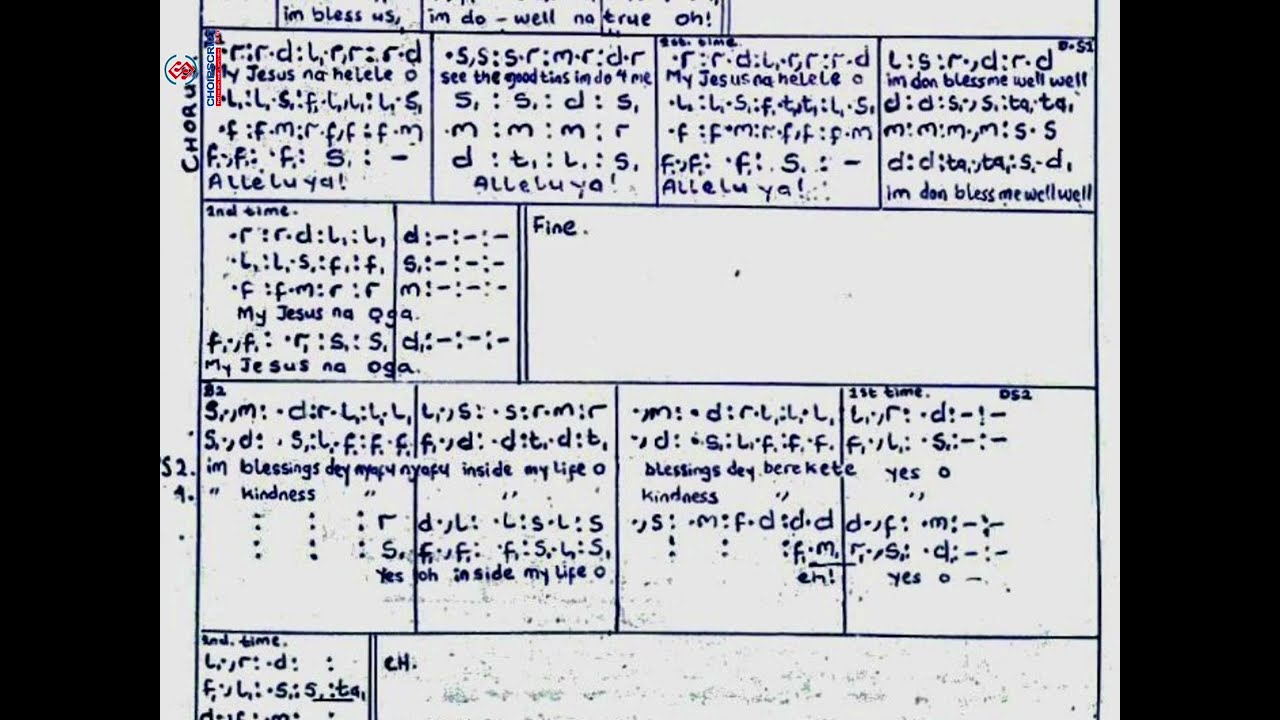 im bless us, im do - well na true oh!
CHORUS
CHORSCRIB
1st. time. D.S1
·r:r·d:l,·r,r:·r·d ·s,s:s·r:m·r:d·r ·r:r·d:l,·r,r:r·d l:s:r·,d:r·d
My Jesus na helele o see the good tins im do 4 me My Jesus na helele o im don bless me well well
·l,:l,·s,:f,·l,l,:l,·s, s,:s,:d:s, ·l,:l,·s,:f,·t,t,:l,·s, d:d:s,·,s,:ta,·ta,
·f:f·m:r·f,f:f·m m:m:m:r ·f:f·m:r·f,f:f·m m:m:m·,m:s·s
f,·,f,: ·f,: s,: - d:t,:l,:s, f,·,f,: ·f,: s,: - d:d:ta,·,ta,:s,·d,
Alleluya! Alleluya! Alleluya! im don bless me well well
2nd time.
·r:r·d:l,:l, d:-:-:- Fine.
·l,:l,·s,:f,:f, s,:-:-:-
·f:f·m:r:r m:-:-:-
My Jesus na ọga.
f,·,f,: ·r,:s,:s, d,:-:-:-
My Jesus na oga.
B2 1st time. DS2
s,·,m: ·d:r·l,:l,·l, l,·,s: ·s:r·m:r ·,m: ·d:r·l,:l,·l, l,·,r: ·d:-:-
s,·,d: ·s,:l,·f,:f,·f, f,·,d: ·d:t,·d:t, ·,d: ·s,:l,·f,:f,·f, f,·,l,: ·s,:-:-
S2. im blessings dey nyafu nyafu inside my life o blessings dey berekete yes o
4. " kindness " " " kindness " "
: : : r d·,l: ·l:s·l:s ·,s: ·m:f·d:d·d d·,f: ·m:-:-
: : : s, f,·,f,: ·f,:s,·l,:s, : : :f,·m, r,·,s,: ·d,:-:-
Yes oh inside my life o eh! yes o -
2nd. time.
l,·,r: ·d: : eH.
f,·,l,: ·s,:s,:ta,
d·,f: ·m: :